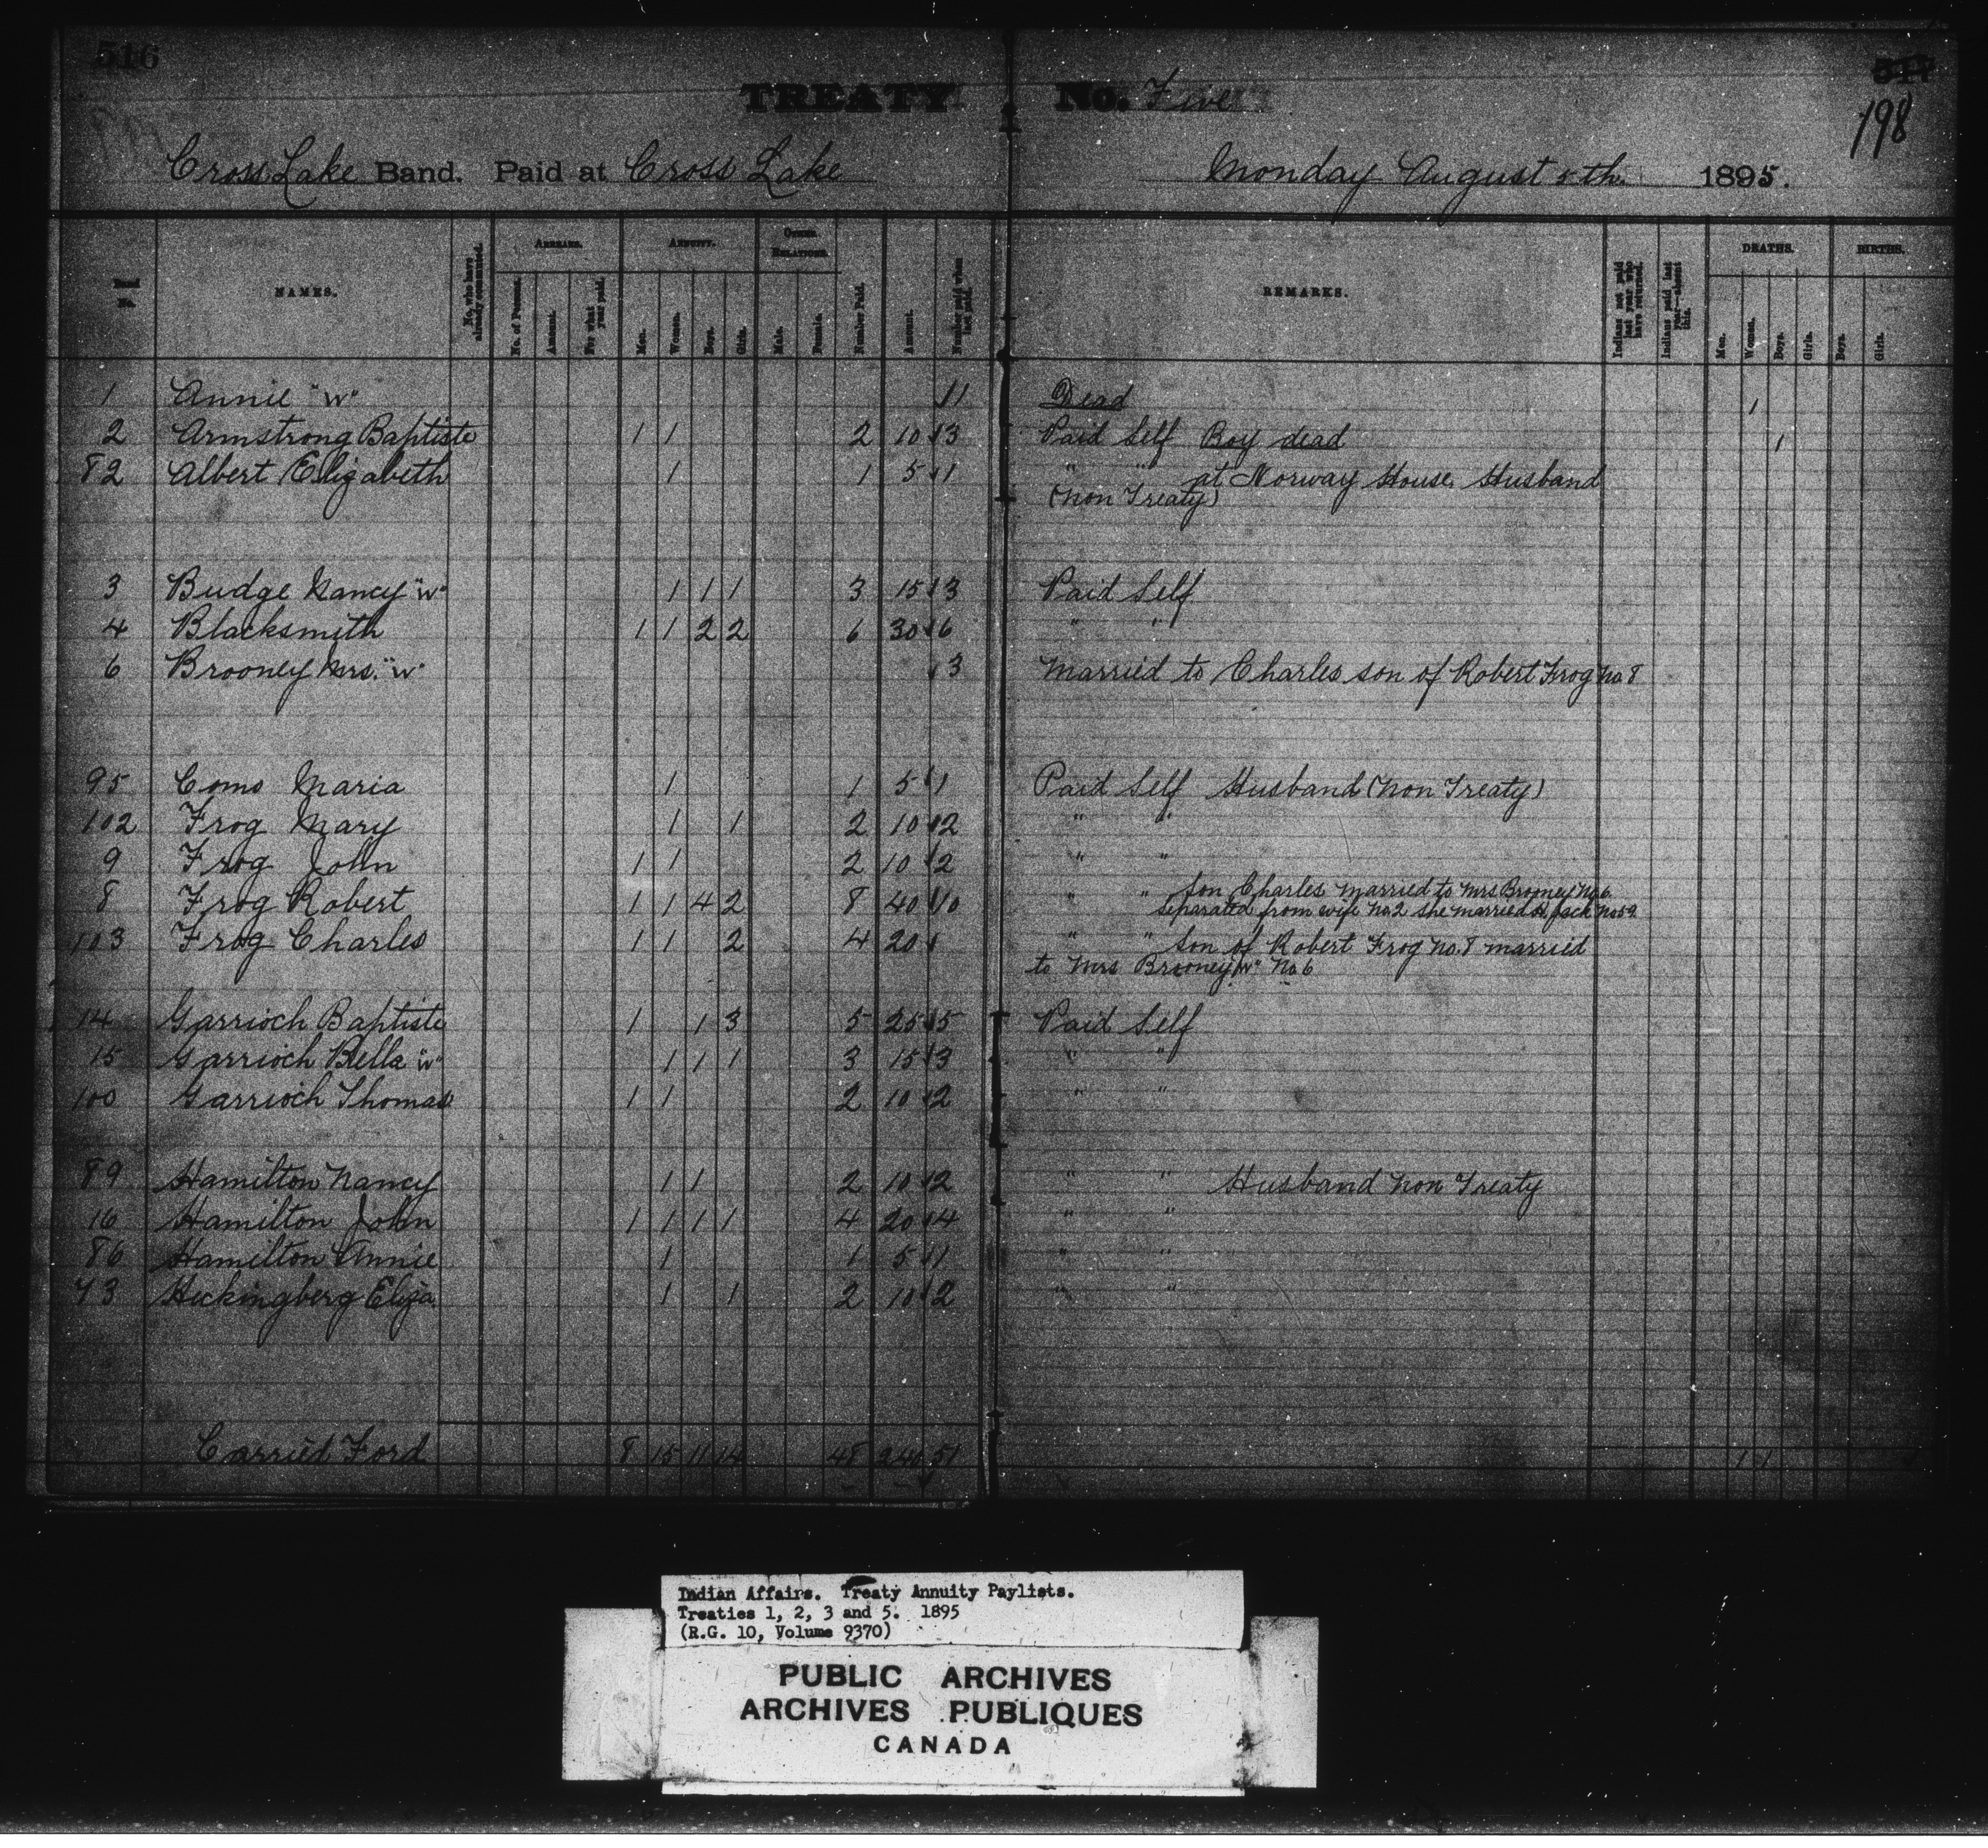 516
TREATY No. Five
198
Cross Lake Band. Paid at Cross Lake Monday August 5th. 1895.
Band No. NAMES. No. who have already commuted. ARREARS. No. of Persons. Amount. For what year paid. ANNUITY. Men. Women. Boys. Girls. OTHER RELATIONS. Male. Female. Number Paid. Amount. Number paid when last paid. REMARKS. Indians not paid last year who have returned. Indians paid last year—absent this. DEATHS. Men. Women. Boys. Girls. BIRTHS. Boys. Girls.
1 Annie "W" 1 Dead 1
2 Armstrong Baptiste 1 1 2 10 3 Paid Self Boy dead 1
82 Albert Elizabeth 1 1 5 1 " " at Norway House. Husband
(Non Treaty)
3 Budge Nancy "W" 1 1 1 3 15 3 Paid Self
4 Blacksmith 1 1 2 2 6 30 6 " "
6 Brooney Mrs. "W" 3 Married to Charles son of Robert Frog No 8
95 Como Maria 1 1 5 1 Paid Self Husband (Non Treaty)
102 Frog Mary 1 1 2 10 2 " "
9 Frog John 1 1 2 10 2 " "
8 Frog Robert 1 1 4 2 8 40 10 " " Son Charles married to Mrs Brooney No 6
separated from wife No 2 she married H. Jack No 59
103 Frog Charles 1 1 2 4 20 " " Son of Robert Frog No. 8 married
to Mrs Brooney "W" No 6
14 Garrioch Baptiste 1 1 3 5 25 5 Paid Self
15 Garrioch Bella "W" 1 1 1 3 15 3 " "
100 Garrioch Thomas 1 1 2 10 2 " "
89 Hamilton Nancy 1 1 2 10 2 " " Husband Non Treaty
16 Hamilton John 1 1 1 1 4 20 4 " "
86 Hamilton Annie 1 1 5 1 " "
73 Heckingberg Eliza 1 1 2 10 2 " "
Carried Ford 8 15 11 14 48 240 51 1 1
Indian Affairs. Treaty Annuity Paylists.
Treaties 1, 2, 3 and 5. 1895
(R.G. 10, Volume 9370)
PUBLIC ARCHIVES
ARCHIVES PUBLIQUES
CANADA